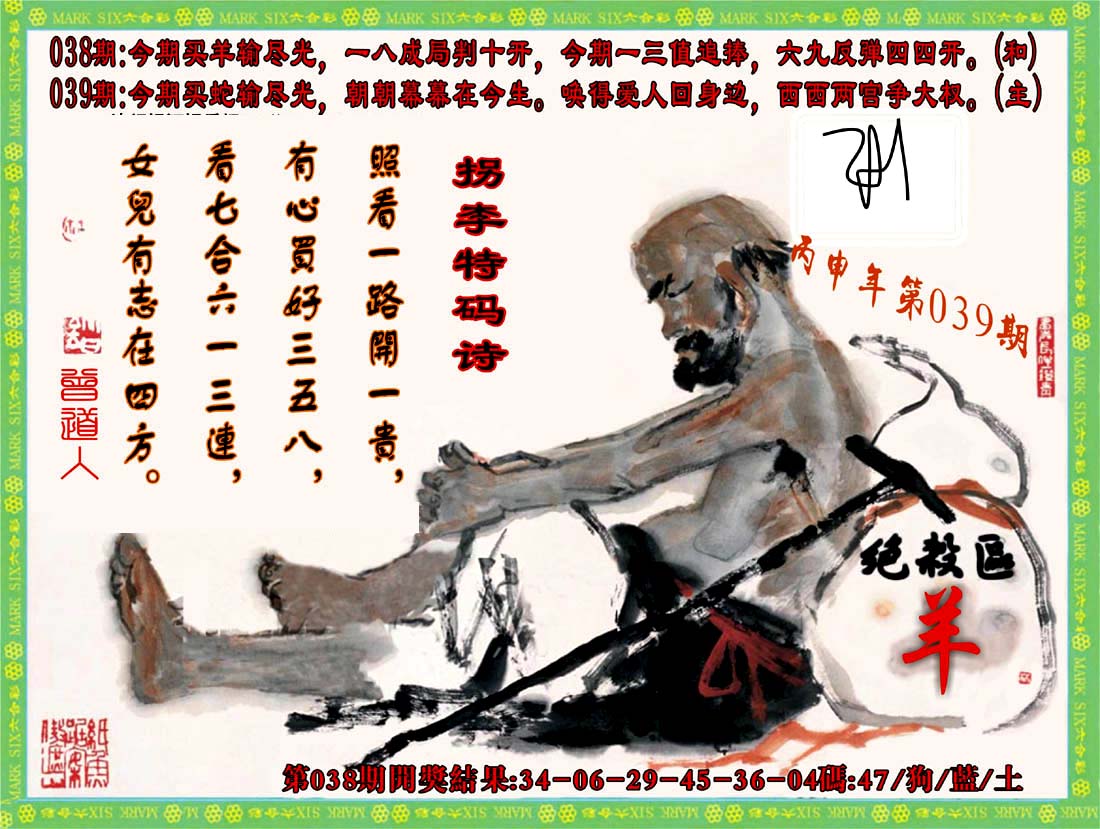 MARK SIX六合彩
038期:今期买羊输尽光，一八成局判十开，今期一三值追捧，六九反弹四四开。(和)
039期:今期买蛇输尽光，朝朝幕幕在今生。唤得爱人回身边，西西两宫争大权。(主)
拐李特码诗
照看一路開一貴，
有心買好三五八，
看七合六一三連，
女兒有志在四方。
曾道人
丙申年第039期
绝殺區
羊
第038期開獎結果:34-06-29-45-36-04碼:47/狗/藍/土